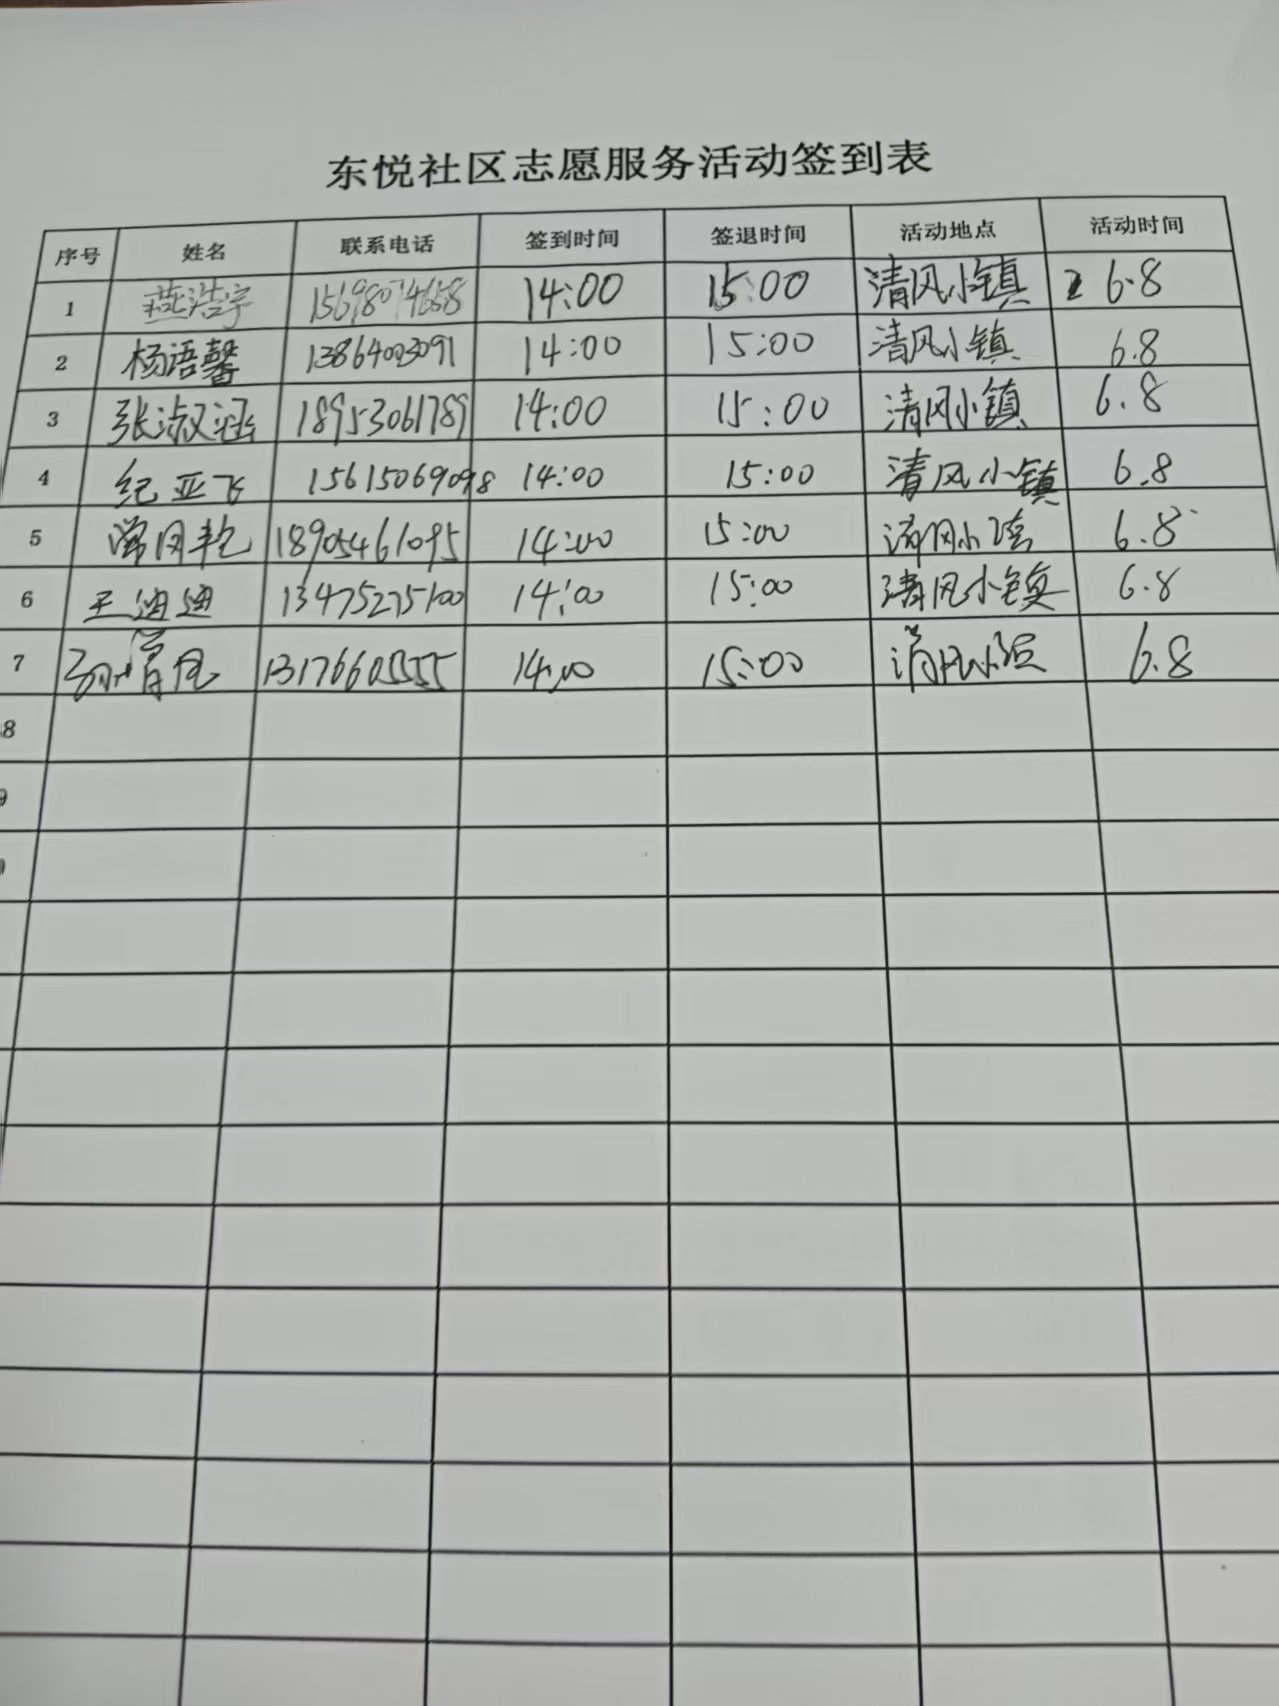 东悦社区志愿服务活动签到表
序号 姓名 联系电话 签到时间 签退时间 活动地点 活动时间
1 燕浩宇 15698074658 14:00 15:00 清风小镇 6.8
2 杨语馨 13864003091 14:00 15:00 清风小镇 6.8
3 张淑涵 18953061789 14:00 15:00 清风小镇 6.8
4 纪亚飞 15615069098 14:00 15:00 清风小镇 6.8
5 18905461095 14:00 15:00 清风小镇 6.8
6 王迪迪 13475275100 14:00 15:00 清风小镇 6.8
7 13176605555 14:00 15:00 清风小镇 6.8
8
9